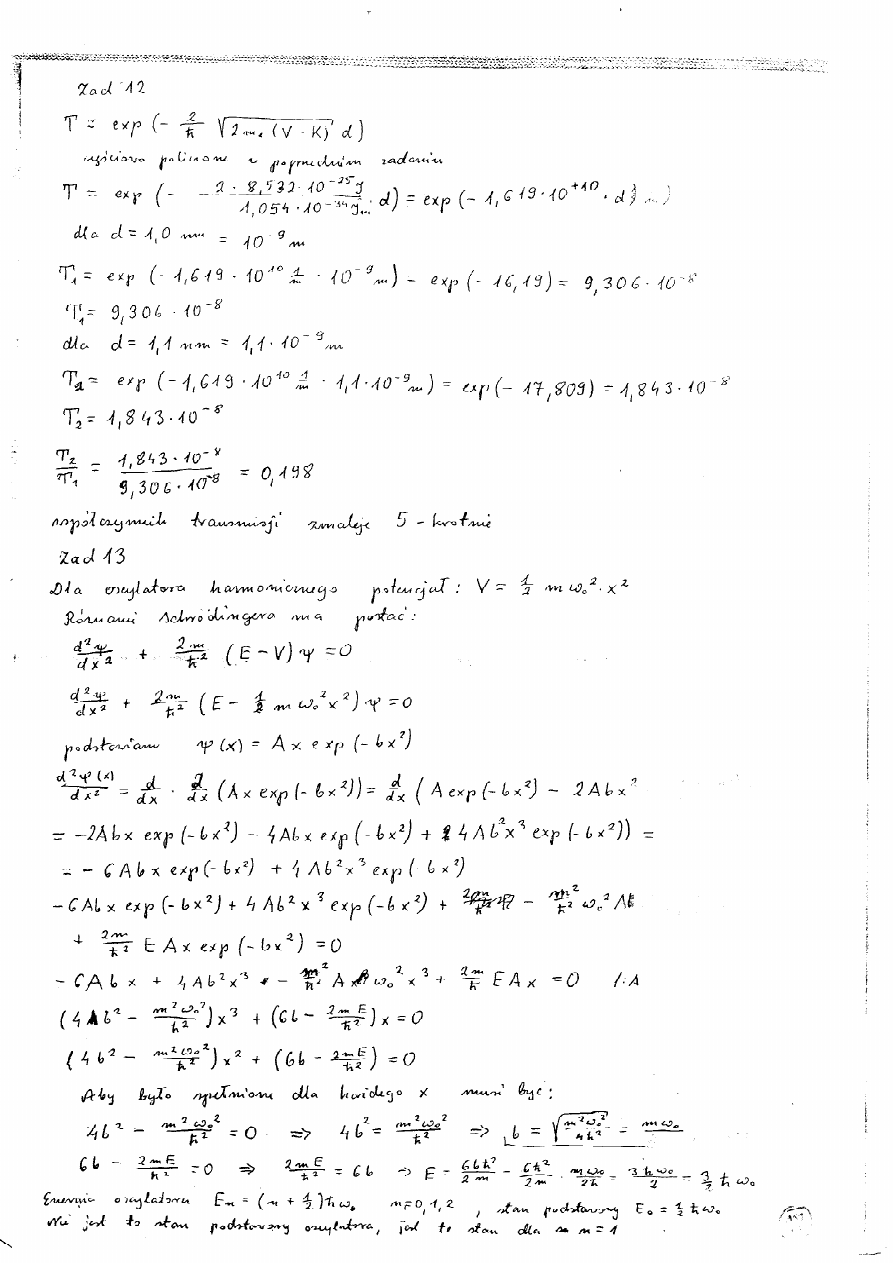 Zad 12
T = exp (- 2/ħ √(2me (V - K)) d)
zadaniu
T = exp (- - 2 · 8,532 · 10^-25 J / 1,054 · 10^-34 J · d) = exp (- 1,619 · 10^+10 · d
dla d = 1,0 nm = 10^-9 m
T₁ = exp (- 1,619 · 10^10 1/m · 10^-9 m) = exp (- 16,19) = 9,306 · 10^-8
T₁ = 9,306 · 10^-8
dla d = 1,1 nm = 1,1 · 10^-9 m
T₂ = exp (- 1,619 · 10^10 1/m · 1,1 · 10^-9 m) = exp (- 17,809) = 1,843 · 10^-8
T₂ = 1,843 · 10^-8
T₂/T₁ = 1,843 · 10^-8 / 9,306 · 10^-8 = 0,198
współczynnik transmisji zmaleje 5 - krotnie
Zad 13
Dla oscylatora harmonicznego potencjał : V = 1/2 m ω₀² · x²
Równanie Schrödingera ma postać :
d²ψ/dx² + 2m/ħ² (E - V) ψ = 0
d²ψ/dx² + 2m/ħ² (E - 1/2 m ω₀² x²) ψ = 0
podstawiamy ψ(x) = A x exp (- bx²)
d²ψ(x)/dx² = d/dx · d/dx (A x exp (- bx²)) = d/dx ( A exp (- bx²) - 2Abx²
= -2Abx exp (- bx²) - 4Abx exp (- bx²) + 4Ab²x³ exp (- bx²)) =
= - 6Abx exp (- bx²) + 4Ab²x³ exp ( bx²)
- 6Abx exp (- bx²) + 4Ab²x³ exp (- bx²) + - m²/ħ² ω₀² A
+ 2m/ħ² E A x exp (- bx²) = 0
- 6Abx + 4Ab²x³ - m²/ħ² A ω₀² x³ + 2m/ħ E A x = 0 /:A
(4b² - m²ω₀²/ħ²) x³ + (6b - 2mE/ħ²) x = 0
(4b² - m²ω₀²/ħ²) x² + (6b - 2mE/ħ²) = 0
Aby było spełnione dla każdego x musi być :
4b² - m²ω₀²/ħ² = 0 => 4b² = m²ω₀²/ħ² => b = √(m²ω₀²/4ħ²) = mω₀
6b - 2mE/ħ² = 0 => 2mE/ħ² = 6b => E = 6bħ²/2m = 6ħ²/2m · mω₀/2ħ = 3ħω₀/2 = 3/2 ħω₀
Energia oscylatora Eₙ = (n + 1/2) ħω₀ n = 0, 1, 2 , stan podstawowy E₀ = 1/2 ħω₀
Nie jest to stan podstawowy oscylatora, jest to stan dla n = 1